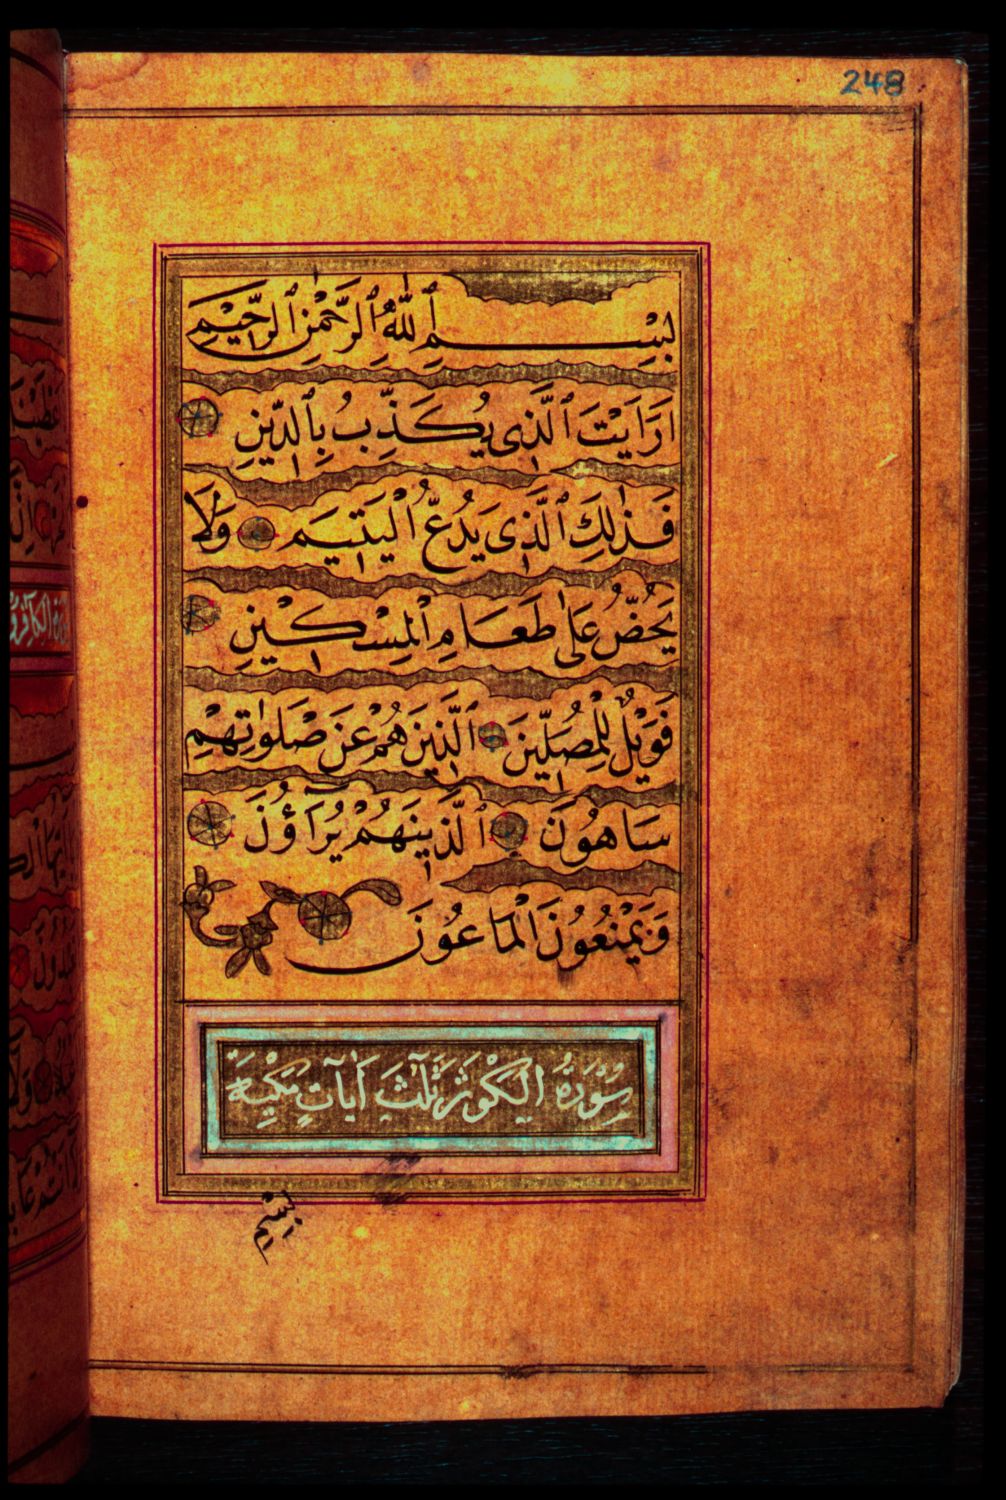 248
بِسْمِ ٱللّٰهِ ٱلرَّحْمٰنِ ٱلرَّحِيْمِ
اَرَاَيْتَ ٱلَّذِى يُكَذِّبُ بِٱلدِّيْنِ
فَذٰلِكَ ٱلَّذِى يَدُعُّ الْيَتِيْمَ وَلَا
يَحُضُّ عَلٰى طَعَامِ الْمِسْكِيْنِ
فَوَيْلٌ لِلْمُصَلِّيْنَ ٱلَّذِيْنَ هُمْ عَنْ صَلٰوتِهِمْ
سَاهُوْنَ ٱلَّذِيْنَ هُمْ يُرَاؤُنَ
وَيَمْنَعُوْنَ الْمَاعُوْنَ
سُوْرَةُ الْكَوْثَرِ ثَلٰثَ اٰيَاتٍ مَكِّيَّة
بِسْمِ